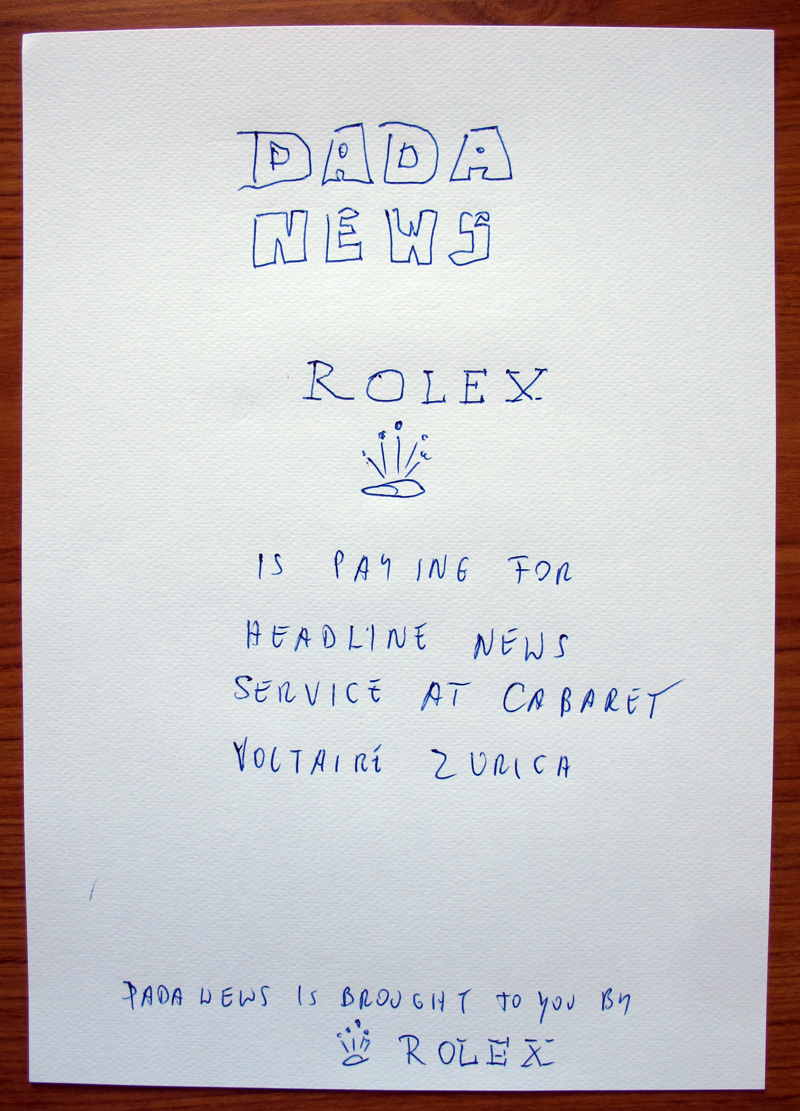 DADA
NEWS
ROLEX
IS PAYING FOR
HEADLINE NEWS
SERVICE AT CABARET
VOLTAIRE ZURICA
DADA NEWS IS BROUGHT TO YOU BY
ROLEX